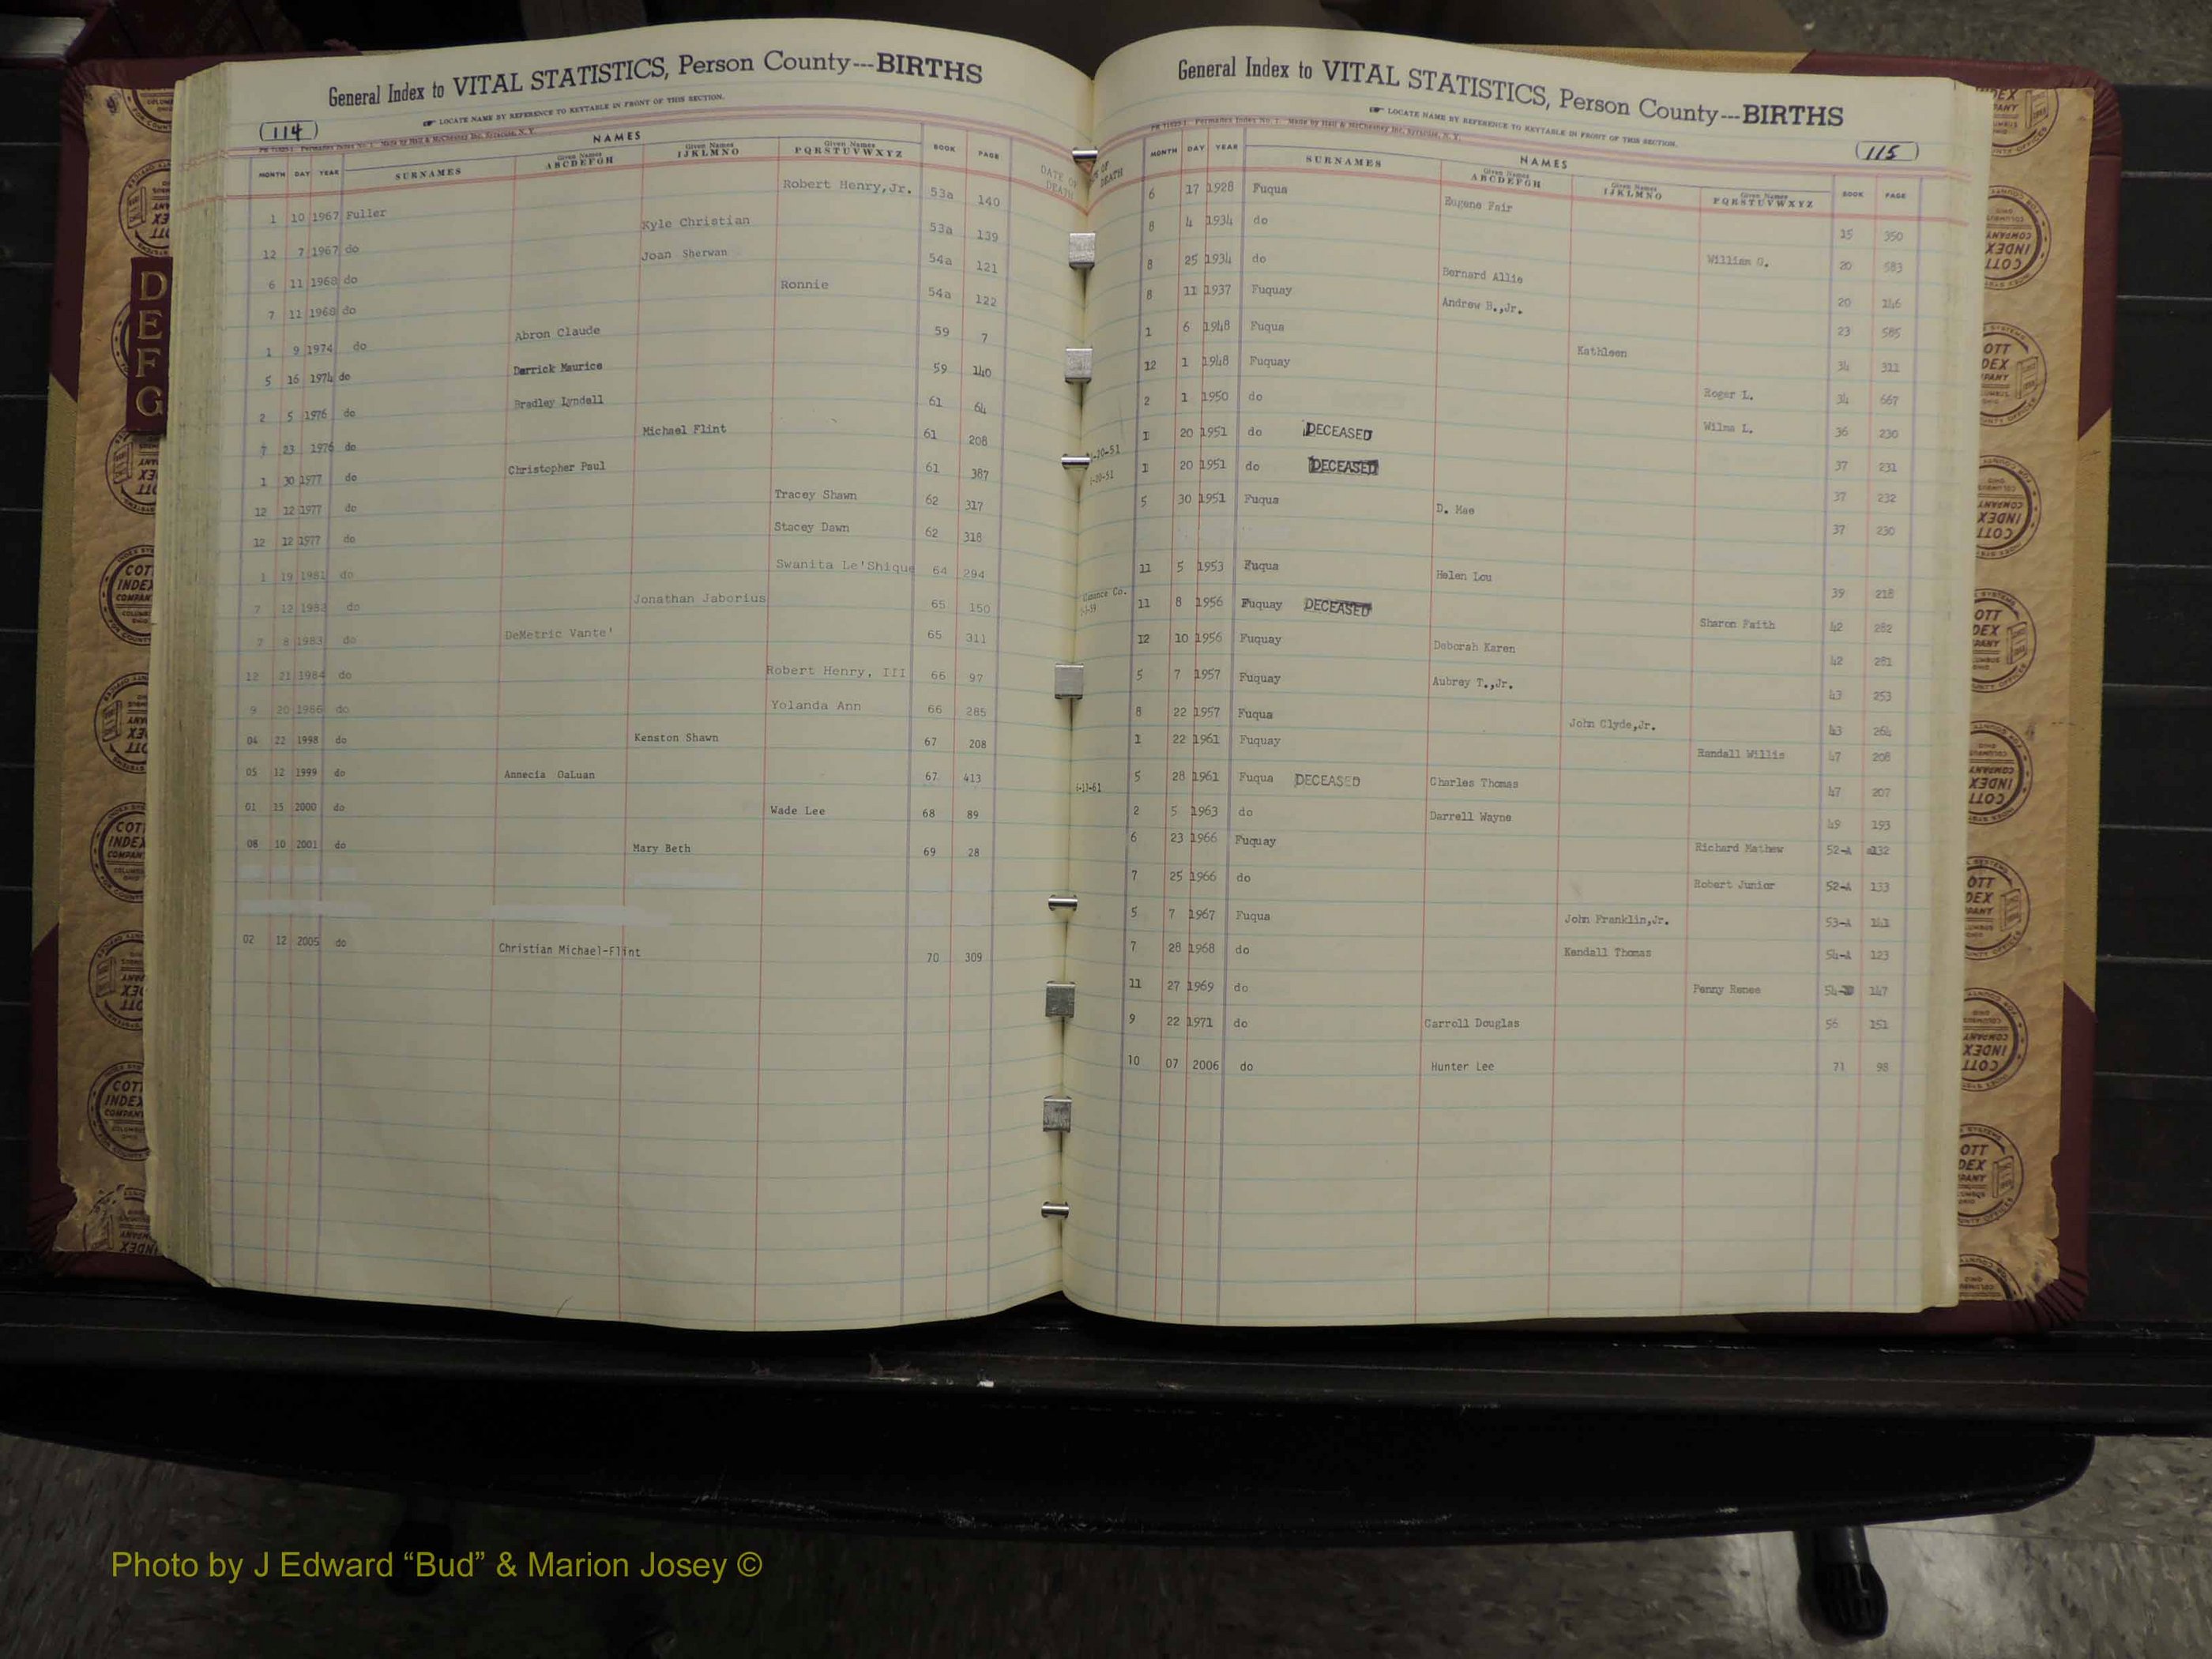 General Index to VITAL STATISTICS, Person County---BIRTHS
LOCATE NAME BY REFERENCE TO KEYTABLE IN FRONT OF THIS SECTION.
(114)
NAMES
MONTH DAY YEAR SURNAMES Given Names ABCDEFGH Given Names IJKLMNO Given Names PQRSTUVWXYZ BOOK PAGE DATE OF DEATH
1 10 1967 Fuller Robert Henry,Jr. 53a 140
12 7 1967 do Kyle Christian 53a 139
6 11 1968 do Joan Sherwan 54a 121
7 11 1968 do Ronnie 54a 122
1 9 1974 do Abron Claude 59 7
5 16 1974 do Derrick Maurice 59 140
2 5 1976 do Bradley Lyndell 61 64
7 23 1976 do Michael Flint 61 208
1 30 1977 do Christopher Paul 61 387
12 12 1977 do Tracey Shawn 62 317
12 12 1977 do Stacey Dawn 62 318
1 19 1981 do Swanita Le'Shique 64 294
7 12 1982 do Jonathan Jaborius 65 150
7 8 1983 do DeMetric Vante' 65 311
12 21 1984 do Robert Henry, III 66 97
9 20 1986 do Yolanda Ann 66 285
04 22 1998 do Kenston Shawn 67 208
05 12 1999 do Annecia OaLuan 67 413
01 15 2000 do Wade Lee 68 89
08 10 2001 do Mary Beth 69 28
02 12 2005 do Christian Michael-Flint 70 309
General Index to VITAL STATISTICS, Person County---BIRTHS
LOCATE NAME BY REFERENCE TO KEYTABLE IN FRONT OF THIS SECTION.
(115)
NAMES
MONTH DAY YEAR SURNAMES Given Names ABCDEFGH Given Names IJKLMNO Given Names PQRSTUVWXYZ BOOK PAGE
6 17 1928 Fuqua Eugene Fair 15 350
8 4 1934 do William G. 20 583
8 25 1934 do Bernard Allie 20 146
8 11 1937 Fuquay Andrew B.,Jr. 23 585
1 6 1948 Fuqua Kathleen 34 311
12 1 1948 Fuquay Roger L. 34 667
2 1 1950 do Wilma L. 36 230
1 20 1951 do DECEASED 37 231
1 20 1951 do DECEASED 37 232
5 30 1951 Fuqua D. Mae 37 230
11 5 1953 Fuqua Helen Lou 39 218
11 8 1956 Fuquay DECEASED Sharon Faith 42 282
12 10 1956 Fuquay Deborah Karen 42 281
5 7 1957 Fuquay Aubrey T.,Jr. 43 253
8 22 1957 Fuqua John Clyde,Jr. 43 264
1 22 1961 Fuquay Randall Willis 47 208
5 28 1961 Fuqua DECEASED Charles Thomas 47 207
2 5 1963 do Darrell Wayne 49 193
6 23 1966 Fuquay Richard Mathew 52-A 132
7 25 1966 do Robert Junior 52-A 133
5 7 1967 Fuqua John Franklin,Jr. 53-A 141
7 28 1968 do Kendall Thomas 54-A 123
11 27 1969 do Penny Renee 147
9 22 1971 do Carroll Douglas 56 151
10 07 2006 do Hunter Lee 71 98
D
E
F
G
Photo by J Edward “Bud” & Marion Josey ©